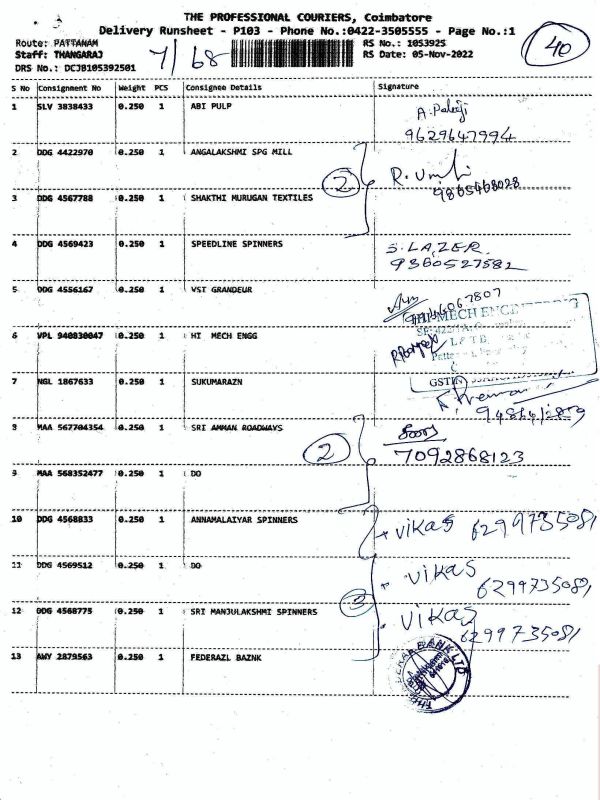 THE PROFESSIONAL COURIERS, Coimbatore
Delivery Runsheet - P103 - Phone No.:0422-3505555 - Page No.:1
Route: PATTANAM
RS No.: 1053925
40
Staff: THANGARAJ
7/68
RS Date: 05-Nov-2022
DRS No.: DCJB105392501
S No Consignment No Weight PCS Consignee Details Signature
1 SLV 3838433 0.250 1 ABI PULP
9629647994
2 DDG 4422970 0.250 1 ANGALAKSHMI SPG MILL
2
9865468028
3 DDG 4567788 0.250 1 SHAKTHI MURUGAN TEXTILES
4 DDG 4569423 0.250 1 SPEEDLINE SPINNERS
S. LAZER
9360527582
5 DDG 4556167 0.250 1 VSI GRANDEUR
HI-MECH ENGINEERING
6 VPL 940830047 0.250 1 HI MECH ENGG
GSTIN
7 NGL 1867633 0.250 1 SUKUMARAZN
8 MAA 567704354 0.250 1 SRI AMMAN ROADWAYS
2
7092868123
9 MAA 568352477 0.250 1 DO
10 DDG 4568833 0.250 1 ANNAMALAIYAR SPINNERS
vikas 6299735081
11 DDG 4569512 0.250 1 DO
vikas
6299735081
3
12 DDG 4568775 0.250 1 SRI MANJULAKSHMI SPINNERS
vikas
6299735081
13 AWY 2879563 0.250 1 FEDERAZL BAZNK
THE FEDERAL BANK LTD